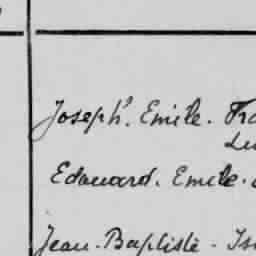 Joseph. Emile. Fra
Lu
Edouard. Emile.
Jean-Baptiste - Is